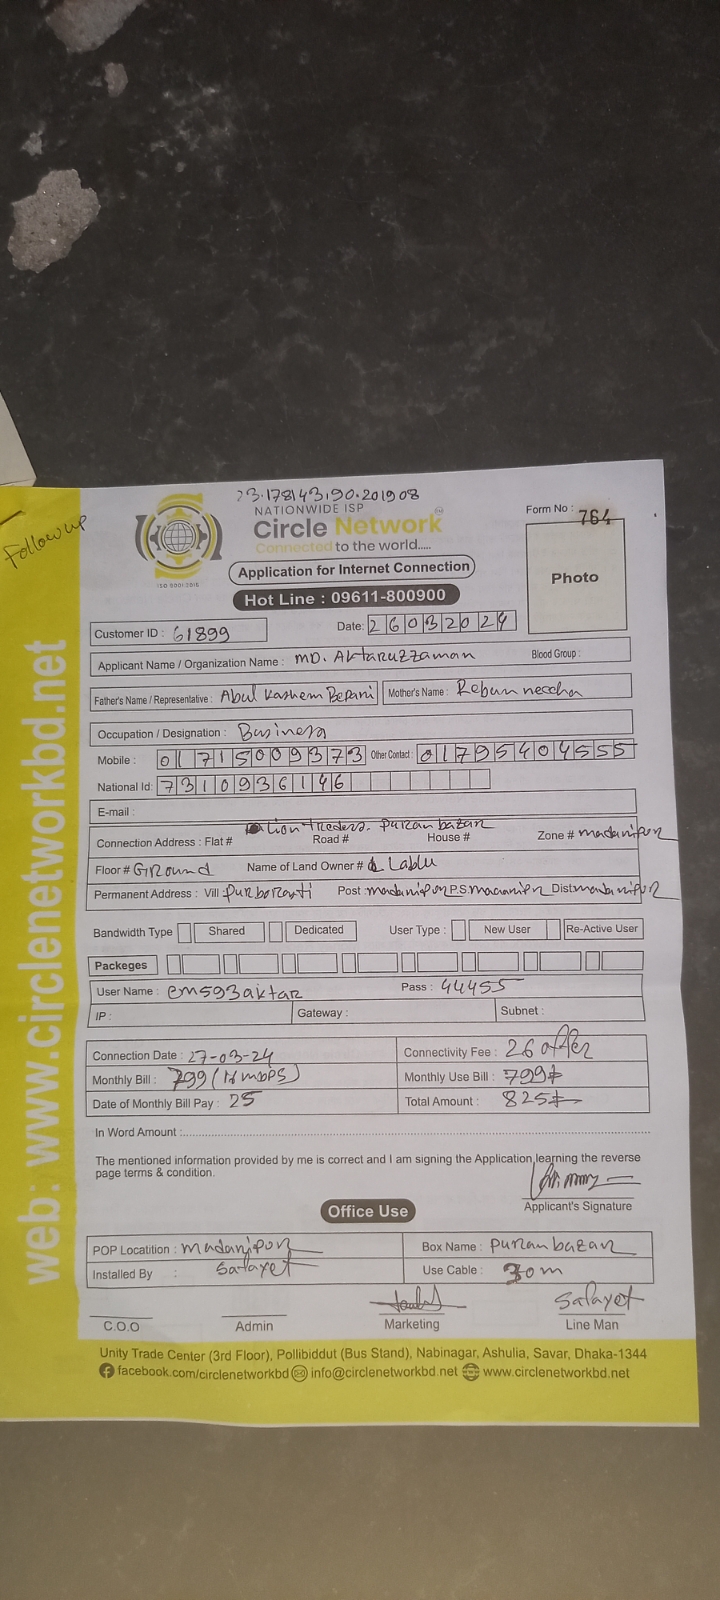 Follow up
23.178143,90.201908
NATIONWIDE ISP
Circle Network
Connected to the world.....
ISO 9001:2015
Form No : 764
Application for Internet Connection
Photo
Hot Line : 09611-800900
Customer ID : 61899 Date: 26032024
Applicant Name / Organization Name : MD. Aktaruzzaman Blood Group :
Father's Name / Representative : Abul Kashem Bepari Mother's Name : Rebun neccha
Occupation / Designation : Business
Mobile : 01715009373 Other Contact : 01795404555
National Id: 7310936146
E-mail :
Lion Treders. Puran bazar
Connection Address : Flat # Road # House # Zone # madaripur
Floor # Ground Name of Land Owner # Lablu
Permanent Address : Vill Post madaripur P.S Dist madaripur
Bandwidth Type Shared Dedicated User Type : New User Re-Active User
Packeges
User Name : em593aktar Pass : 44455
IP : Gateway : Subnet :
Connection Date : 27-03-24 Connectivity Fee : 26 offer
Monthly Bill : 799 Monthly Use Bill : 799
Date of Monthly Bill Pay : 25 Total Amount : 825
In Word Amount :
The mentioned information provided by me is correct and I am signing the Application,learning the reverse
page terms & condition.
Applicant's Signature
Office Use
POP Locatition : madaripur Box Name : Puran bazar
Installed By : Safayet Use Cable : 30m
Safayet
C.O.O Admin Marketing Line Man
Unity Trade Center (3rd Floor), Pollibiddut (Bus Stand), Nabinagar, Ashulia, Savar, Dhaka-1344
facebook.com/circlenetworkbd info@circlenetworkbd.net www.circlenetworkbd.net
web: www.circlenetworkbd.net